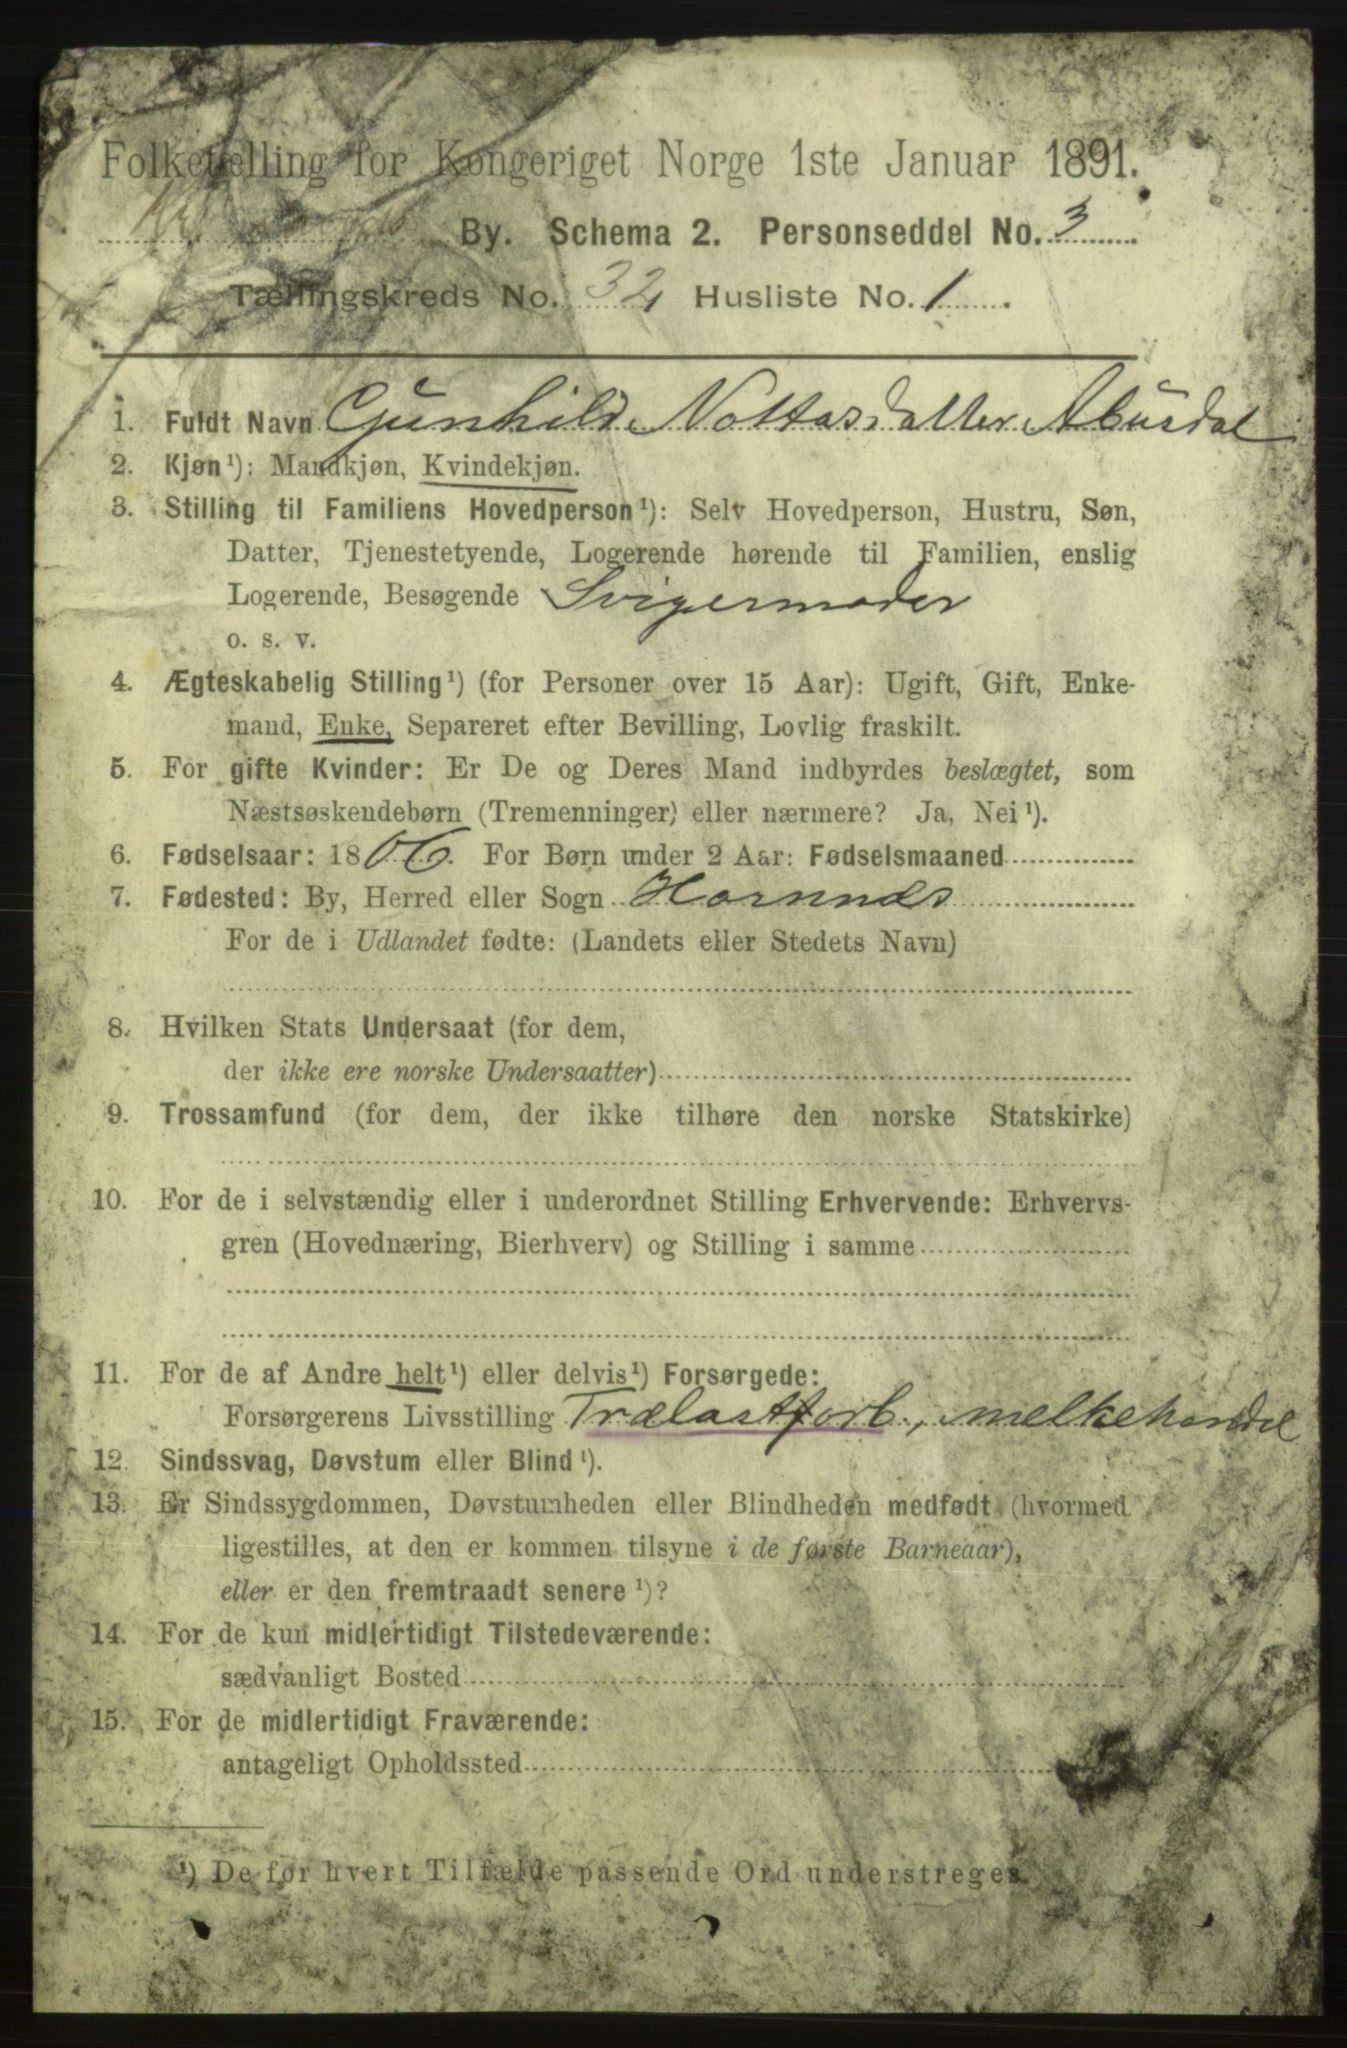 Folketelling for Kongeriget Norge 1ste Januar 1891.
By. Schema 2. Personseddel No. 3
Tællingskreds No. 32 Husliste No. 1.
1. Fuldt Navn Gunhild Nottosdatter Abusdal
2. Kjøn¹): Mandkjøn, Kvindekjøn.
3. Stilling til Familiens Hovedperson¹): Selv Hovedperson, Hustru, Søn,
Datter, Tjenestetyende, Logerende hørende til Familien, enslig
Logerende, Besøgende Svigermoder
o. s. v.
4. Ægteskabelig Stilling¹) (for Personer over 15 Aar): Ugift, Gift, Enke-
mand, Enke, Separeret efter Bevilling, Lovlig fraskilt.
5. For gifte Kvinder: Er De og Deres Mand indbyrdes beslægtet, som
Næstsøskendebørn (Tremenninger) eller nærmere? Ja, Nei¹).
6. Fødselsaar: 1806. For Børn under 2 Aar: Fødselsmaaned
7. Fødested: By, Herred eller Sogn Hornnes
For de i Udlandet fødte: (Landets eller Stedets Navn)
8. Hvilken Stats Undersaat (for dem,
der ikke ere norske Undersaatter)
9. Trossamfund (for dem, der ikke tilhøre den norske Statskirke)
10. For de i selvstændig eller i underordnet Stilling Erhvervende: Erhvervs-
gren (Hovednæring, Bierhverv) og Stilling i samme
11. For de af Andre helt¹) eller delvis¹) Forsørgede:
Forsørgerens Livsstilling Trælastforb., melkehandel
12. Sindssvag, Døvstum eller Blind¹).
13. Er Sindssygdommen, Døvstumheden eller Blindheden medfødt (hvormed
ligestilles, at den er kommen tilsyne i de første Barneaar),
eller er den fremtraadt senere¹)?
14. For de kun midlertidigt Tilstedeværende:
sædvanligt Bosted
15. For de midlertidigt Fraværende:
antageligt Opholdssted
¹) De for hvert Tilfælde passende Ord understreges.